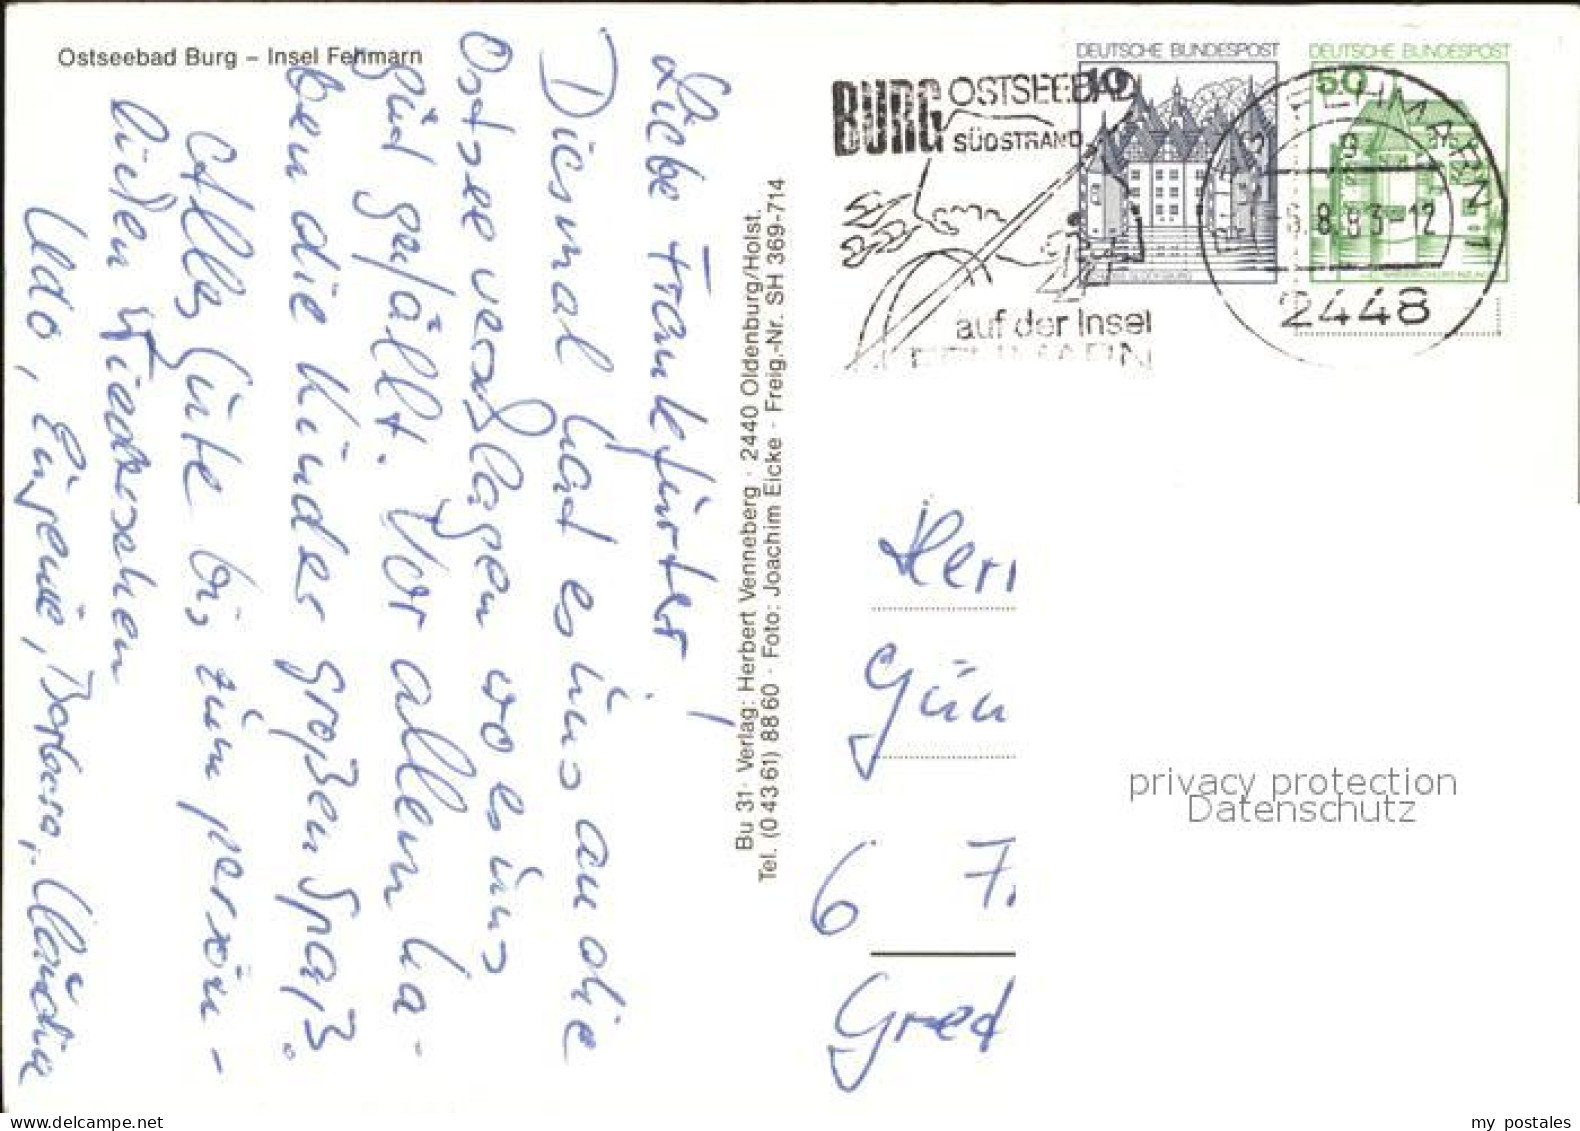 Ostseebad Burg – Insel Fehmarn
Liebe Frankfurter!
Diesmal hat es uns an die
Ostsee verschlagen wo es uns
gut gefällt. Vor allem ha-
ben die Kinder großen Spaß.
Alles Gute bis zum persön-
lichen Wiedersehen
Udo, Eugenie, Barbara, Claudia
Bu 31 · Verlag: Herbert Venneberg · 2440 Oldenburg/Holst.
Tel. (0 43 61) 88 60 · Foto: Joachim Eicke · Freig.-Nr. SH 369-714
BURG OSTSEEBAD
SÜDSTRAND
auf der Insel
FEHMARN
DEUTSCHE BUNDESPOST
10
DEUTSCHE BUNDESPOST
50
FEHMARN 1
8.83-12
2448
Herr
Gün
6 F
Gred
privacy protection
Datenschutz
my postales